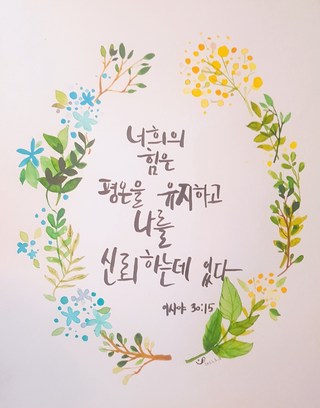 너희의
힘은
평온을 유지하고
나를
신뢰하는데 있다
이사야 30:15